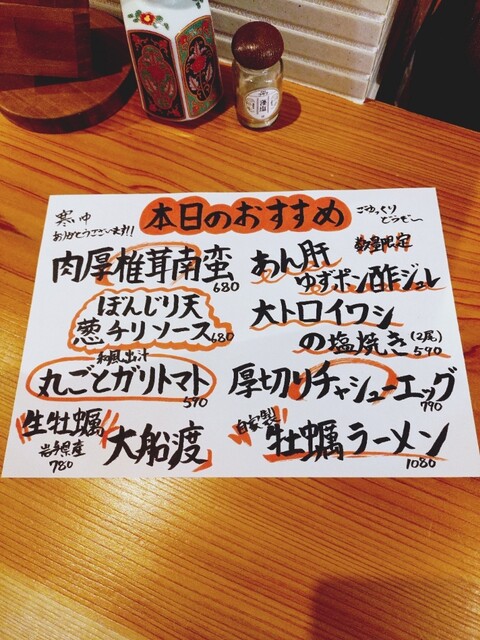 寒い中
ありがとうございます!!
本日のおすすめ
ごゆっくり
どうぞ〜
肉厚椎茸南蛮
680
ぼんじり天
葱チリソース680
和風出汁
丸ごとガリトマト
590
生牡蠣
岩手県産
780
大船渡
数量限定
あん肝
ゆずポン酢ジュレ
大トロイワシ
の塩焼き(2尾)
590
厚切りチャシューエッグ
790
自家製
牡蠣ラーメン
1080